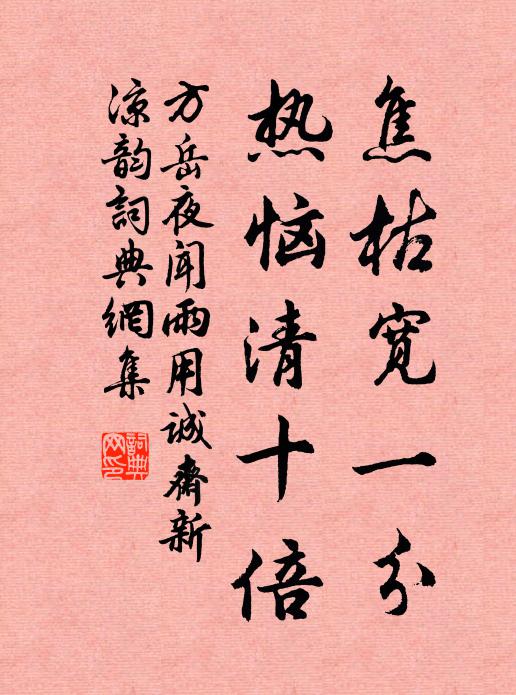 焦枯寛一分
热恼清十倍
方岳夜闻雨用诚斋新
凉韵詞典網集
詞典
网印